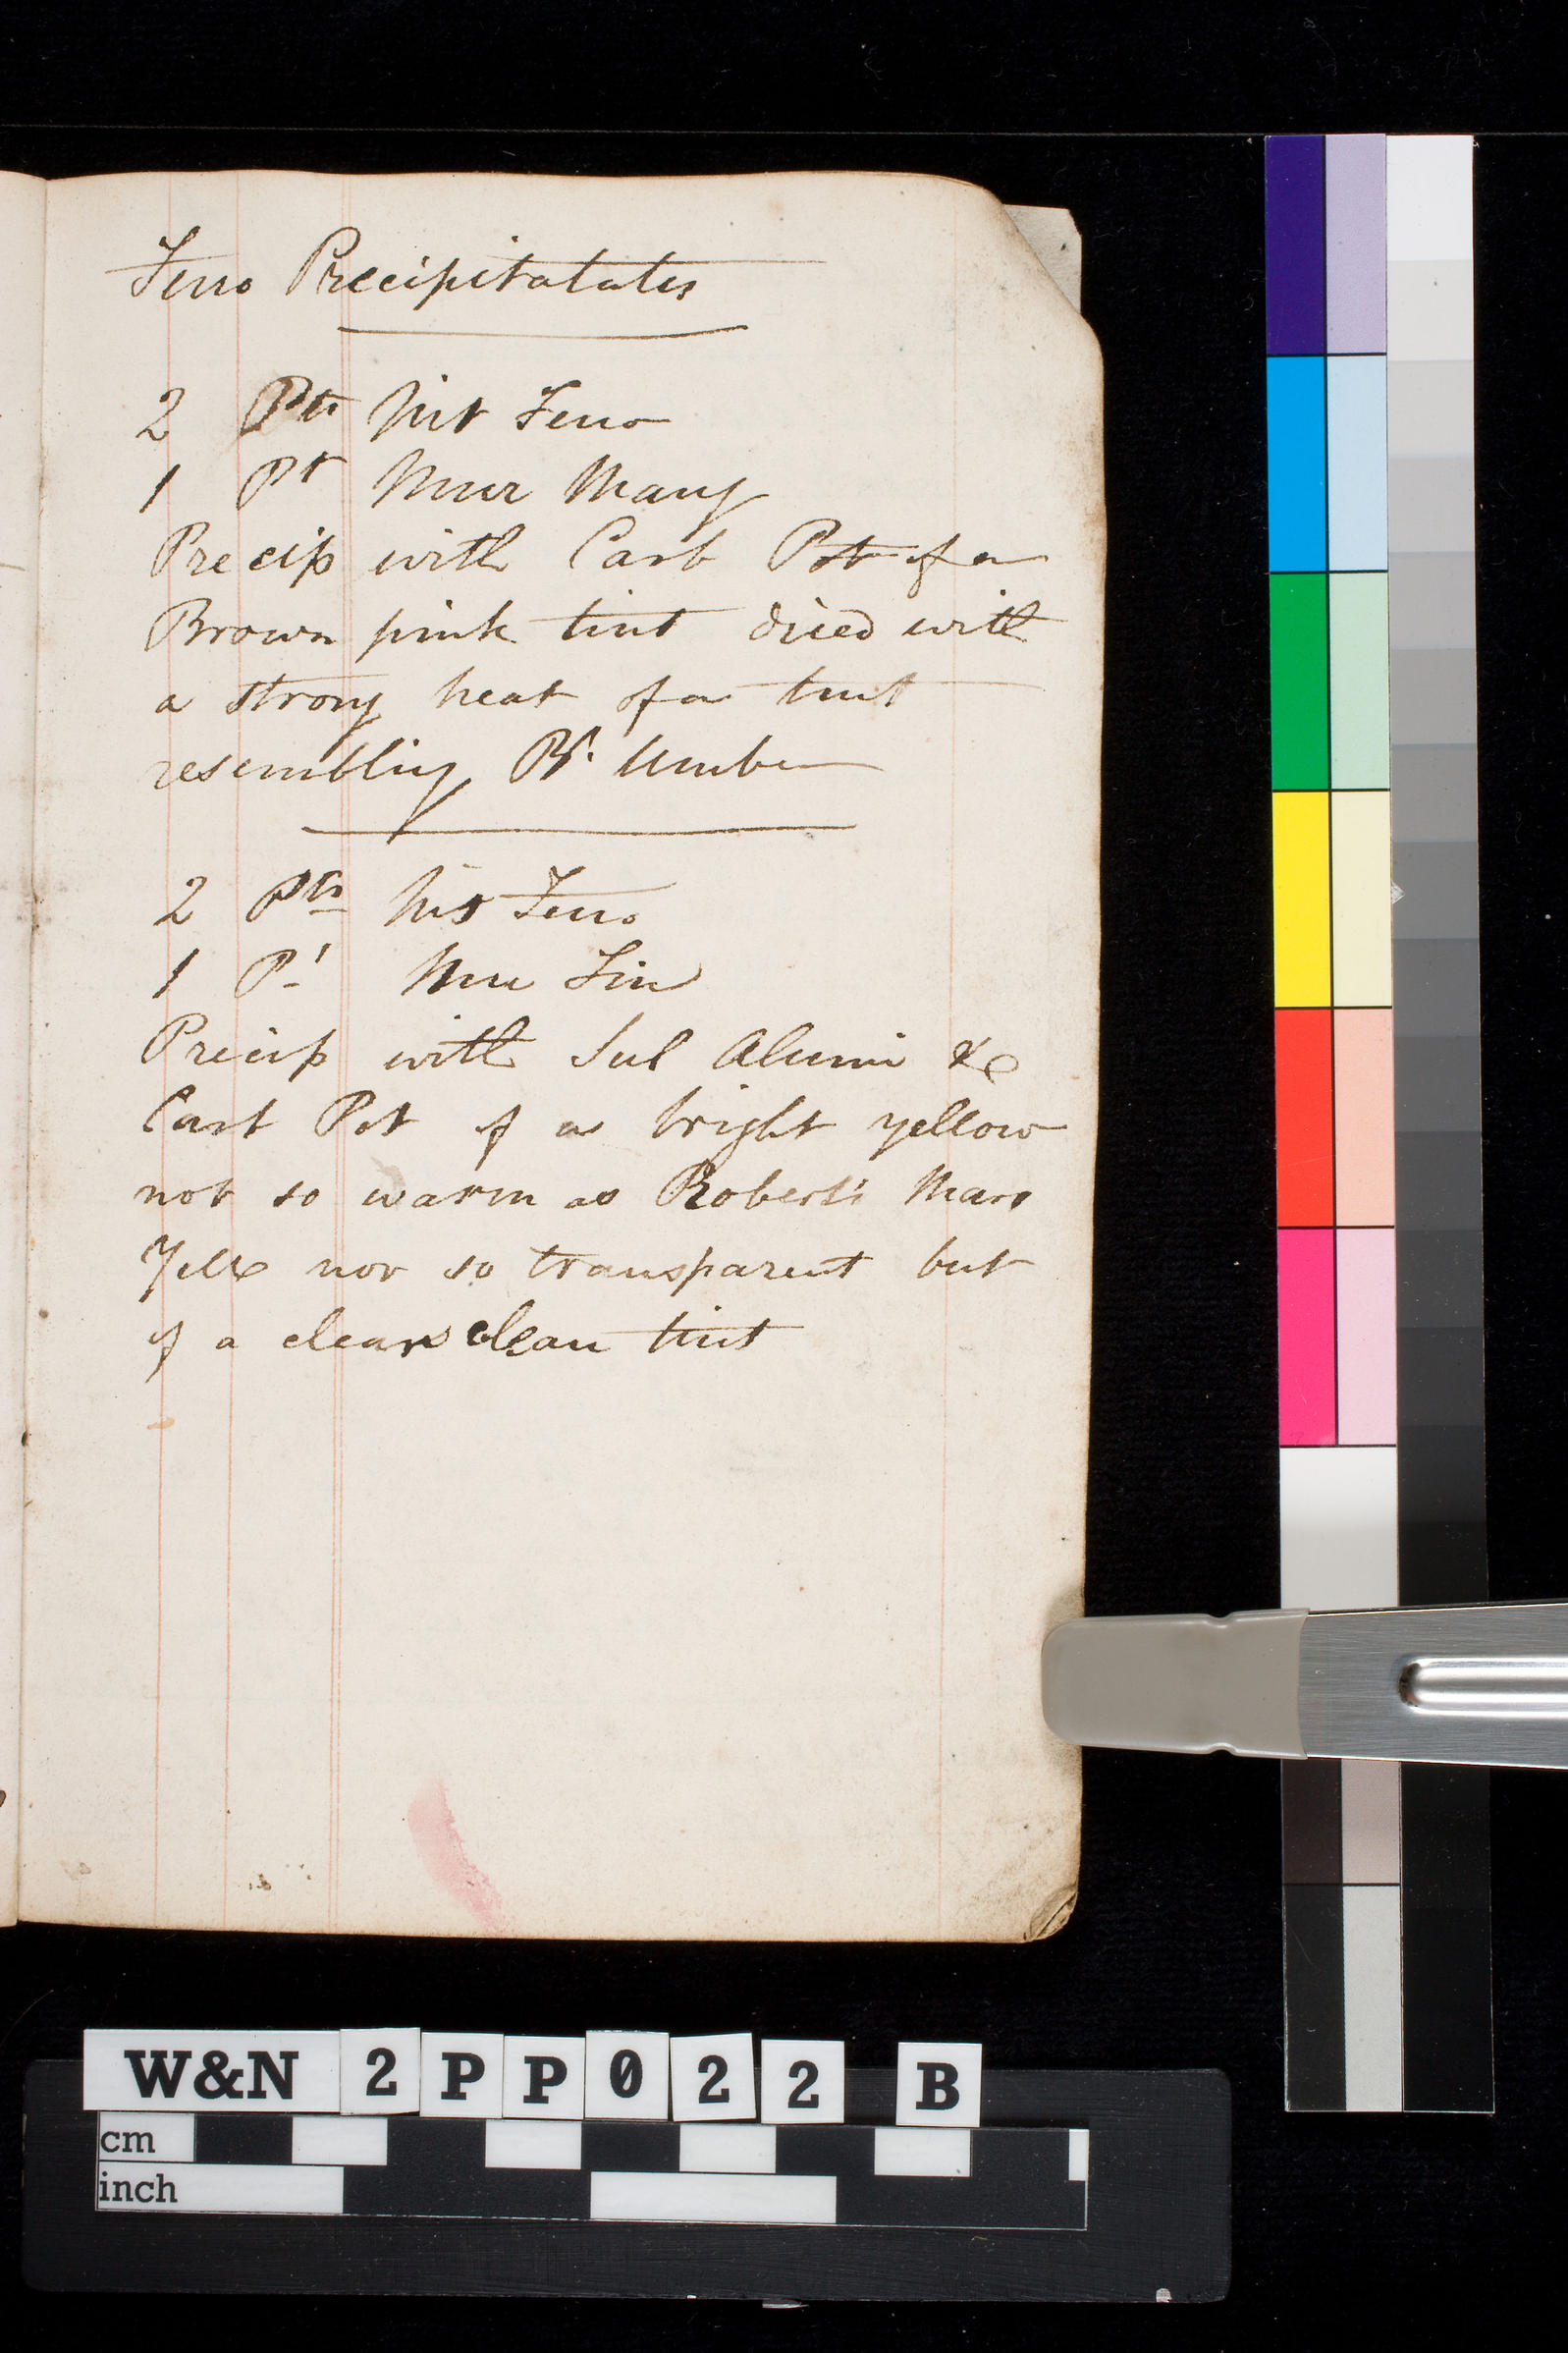 Ferro Precipitatates
2 Pts Nit Ferro
1 Pt Mur Mang
Precip with Carb Pot of a
Brown pink tint dried with
a strong heat of a tint
resembling Bt. Umber
2 Pts Nit Ferro
1 Pt Mur Tin
Precip with Sul Alumi &
Carb Pot of a bright yellow
not so warm as Robert's Mars
Yell nor so transparent but
of a clear clean tint
W&N 2PP022 B
cm
inch